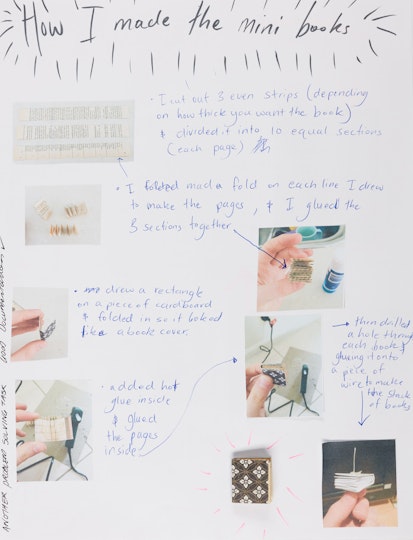 How I made the mini books
• I cut out 3 even strips (depending
on how thick you want the book)
& divided it into 10 equal sections
(each page)
• I folded made a fold on each line I drew
to make the pages, & I glued the
3 sections together
• drew a rectangle
on a piece of cardboard
& folded in so it looked
like a book cover.
• added hot
glue inside
& glued
the pages
inside
• then drilled
a hole through
each book &
glueing it onto
a piece of
wire to make
the stack
of books
ANOTHER PROBLEM SOLVING TASK
GOOD DOCUMENTATION